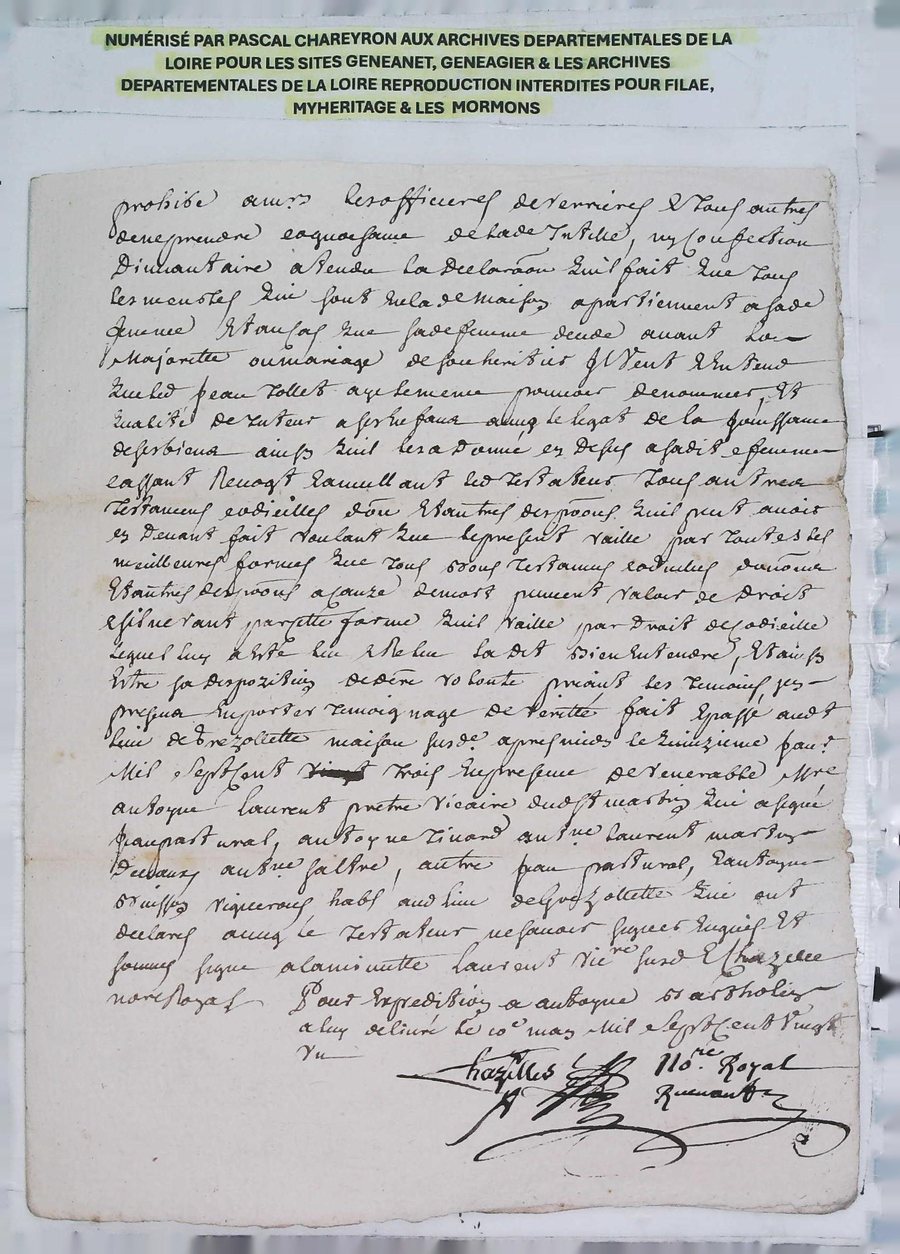 NUMÉRISÉ PAR PASCAL CHAREYRON AUX ARCHIVES DEPARTEMENTALES DE LA
LOIRE POUR LES SITES GENEANET, GENEAGIER & LES ARCHIVES
DEPARTEMENTALES DE LA LOIRE REPRODUCTION INTERDITES POUR FILAE,
MYHERITAGE & LES MORMONS
prohibe les officiers de Verrieres & tous autres
de ne prendre de lade tutelle, ny Confection
Dinvantaire atendu la Declaraon quil fait que tous
les meubles qui sont en lade Maison apartiennent a sade
femme Et au cas que sade femme decede avant la
Majorette ou mariage de son heritier Il Veut & Entend
que led Jean aye le meme pouvoir de nommer, Et
qualité de tuteur a ses Enfans avec le legat de la Jouissance
de ses biens ainsy quil les a Donné cy Desus a sadite femme
cassant Revoqt Et anullant led Testateur tous autres
Testamens codicilles don Et autres quil peut avoir
cy Devant fait voulant que le present vaille par toutes les
meilleures formes que tous bons Testamens codicilles
Et autres a cauze de mort peuvent valoir de Droit
par cette forme quil vaille par Droit de codicille
lequel luy a Esté lu & Relu la dit bien Entendre, Et ainsy
Estre sa dispozition de dere volonté priant les temoins
presens En porter temoignage de verité fait & passé audt
lieu de Grezollette maison susde apres midy le quinzieme
Mil Sept Cent trois En presence de venerable Mre
antoyne Laurent pretre vicaire dudt St martin qui a signé
Jean pastural, antoyne antne laurent martin
antne saltre, autre Jean pastural, & antoyne
vignerons habt aud lieu de Grezollette qui ont
declaré avec le Testateur ne scavoir signer Enquis Et
sommés signé a la minutte Laurent vicre susd & Chazelle
nore Royal Pour Expedition a antoyne
a luy delivré le 10e may Mil Sept Cent Vingt
Vn
Chazelles No.re Royal